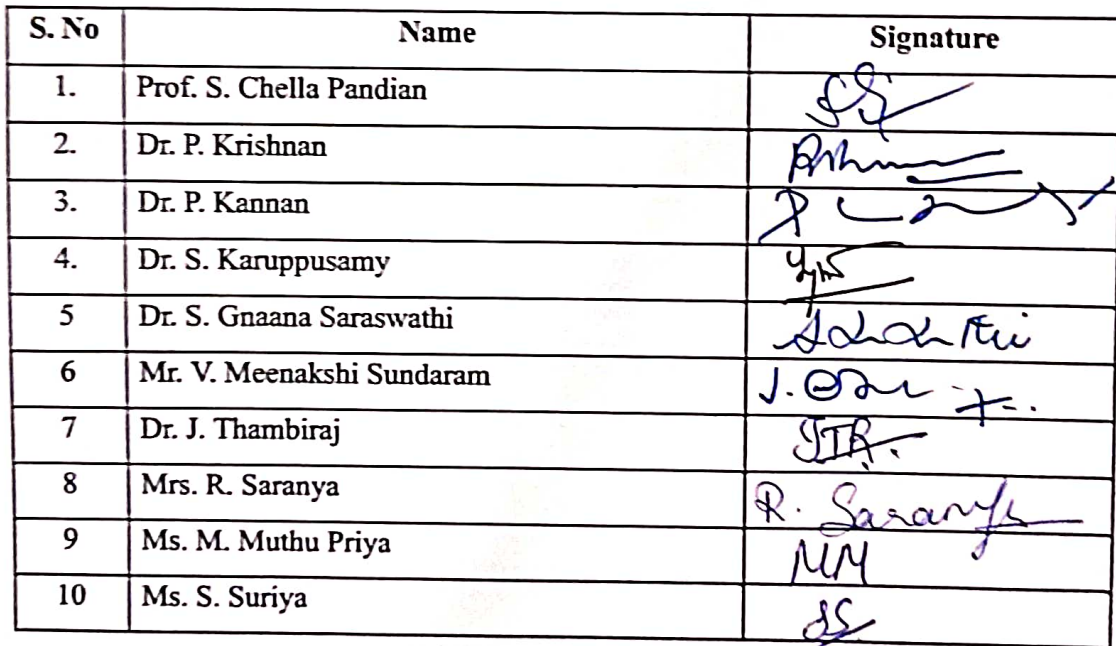 S. No Name Signature
1. Prof. S. Chella Pandian
2. Dr. P. Krishnan
3. Dr. P. Kannan
4. Dr. S. Karuppusamy
5 Dr. S. Gnaana Saraswathi
6 Mr. V. Meenakshi Sundaram
7 Dr. J. Thambiraj JTR.
8 Mrs. R. Saranya R. Saranya
9 Ms. M. Muthu Priya MM
10 Ms. S. Suriya